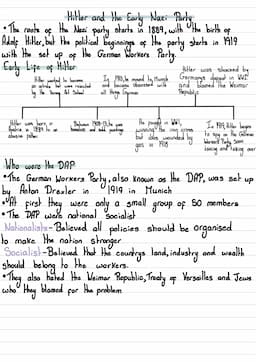 Hitler and the Early Nazi Party
• The roots of the Nazi party starts in 1889, with the birth of
Adolf Hitler, but the political beginnings of the party starts in 1919
with the set up of the German Workers Party.
Early Life of Hitler
Hitler wanted to become
an artist but was rejected
by the Vienna Art School
In 1913, he moved to Munich
and became obsessed with
all things German
Hitler was shocked by
Germanys defeat in WW1
and blamed the Weimar
Republic
Hitler was born in
Austria in 1889 to an
abusive father
Between 1908-13, he was
homeless and sold paintings
He fought in WW1,
winning the iron cross
but also wounded by
gas in 1918
In 1919, Hitler began
to spy on the German
Workers Party, soon
joining and taking over
Who were the DAP
• The German Workers Party, also known as the DAP, was set up
by Anton Drexler in 1919 in Munich
• At first they were only a small group of 50 members
• The DAP were national socialist
Nationalists - Believed all policies should be organised
to make the nation stronger
Socialist - Believed that the countrys land, industry and wealth
should belong to the workers.
• They also hated the Weimar Republic, Treaty of Versailles and Jews
who they blamed for the problem